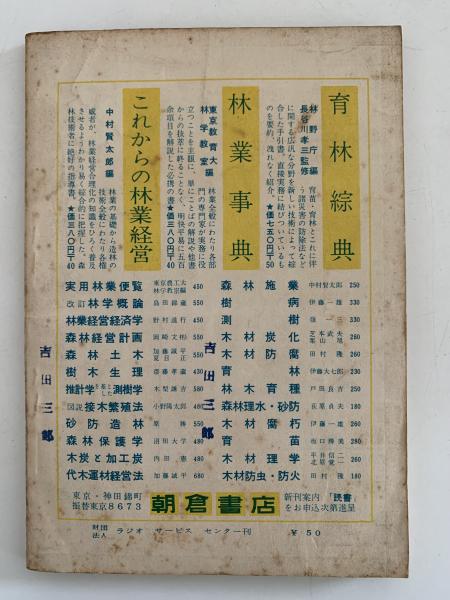 育林綜典
林野庁編
長谷川孝三監修
育苗・育林とこれに伴
う諸災害の防除法など
に関する広汎な分野を新しい技術によって綜
合した手引書。直接実務に結びついているも
のを要約、洩れなく紹介。★価七五〇円〒50
林業事典
東京教育大
林学教室編
林業全般にわたる各部
門の専門家が実務に役
立つことを主眼に、単にことばの解説や他書
からの抜萃に終ることなく、明快平易に五百
余項目を解説した必携の書★価三八〇円〒40
これからの林業経営
中村賢太郎編
林業の基礎から造林の
技術全般にわたり各権
威者が、林業経営合理化の知識をひろく普及
させるようわかり易く綜合的に把握した、森
林技術者に絶好の指導書。★価三五〇円〒40
実用林業便覧 東京農工大林学教室編 450
改訂林学概論 島田錦蔵 450
林業経営経済学 野村進行 430
森林経営計画 岡崎文彬 550
森林土木 加藤誠平 夏目正 580
樹木生理
推計学を基とした測樹学 木梨謙吉
図説接木繁殖法 小野陽太郎 480
砂防造林 原勝 550
森林保護学 沼田大学 530
木炭と加工炭 内田憲 480
代木運材経営法 加藤誠平 680
森林施業 中村賢太郎 250
樹病 伊藤一雄 330
測樹 330
木材炭化 芝本武夫
木材防腐 田村隆 260
育林 伊藤大七郎
木材 戸田良吉 250
森林理水・砂防 荻原貞夫 180
木材腐朽 伊藤一雄
育苗 坂口勝美 280
木材理学 平井信二 北原覚一 260
木材防虫・防火 田村隆 180
吉田三郎
吉田三郎
東京・神田錦町
振替東京8673
朝倉書店
新刊案内「読書」
をお申込次第進呈
財団法人 ラジオ サービス センター刊 ¥50